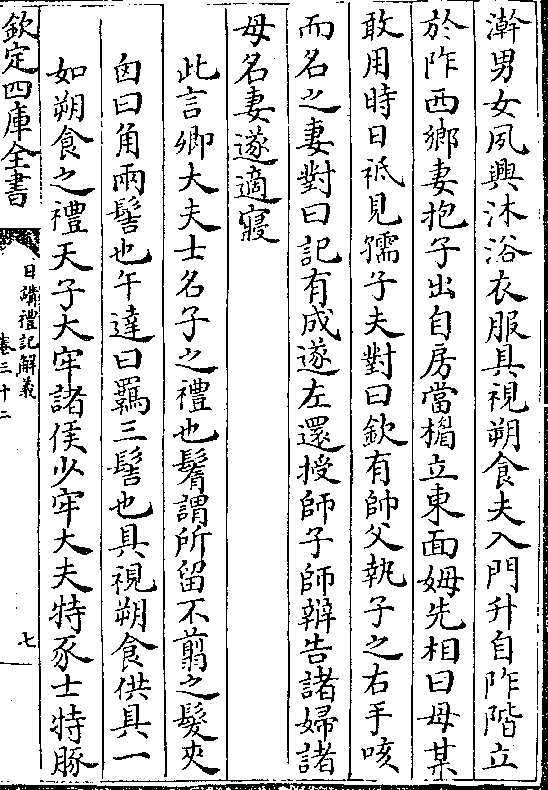 澣男女夙興沐浴衣服具視朔食夫入門升自阼階立
於阼西鄉妻抱子出自房當楣立東面姆先相曰母某
敢用時日祗見孺子夫對曰欽有帥父執子之右手咳
而名之妻對曰記有成遂左還授師子師辯告諸婦諸
母名妻遂適寢
此言卿大夫士名子之禮也鬌謂所留不翦之髮夾
囟曰角兩髻也午達曰羈三髻也具視朔食供具一
如朔食之禮天子大牢諸侯少牢大夫特豕士特豚
欽定四庫全書
日講禮記解義
卷三十二
七